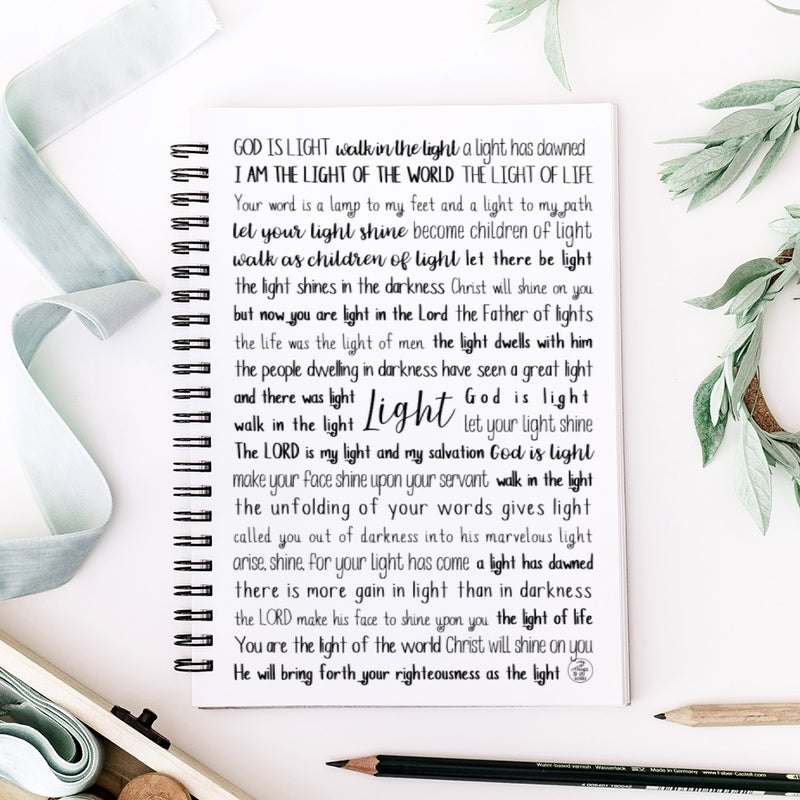 GOD IS LIGHT walk in the light a light has dawned
I AM THE LIGHT OF THE WORLD THE LIGHT OF LIFE
Your word is a lamp to my feet and a light to my path
let your light shine become children of light
walk as children of light let there be light
the light shines in the darkness Christ will shine on you
but now you are light in the Lord the Father of lights
the life was the light of men the light dwells with him
the people dwelling in darkness have seen a great light
and there was light
walk in the light
Light
God is light
let your light shine
The LORD is my light and my salvation God is light
make your face shine upon your servant walk in the light
the unfolding of your words gives light
called you out of darkness into his marvelous light
arise, shine, for your light has come a light has dawned
there is more gain in light than in darkness
the LORD make his face to shine upon you the light of life
You are the light of the world Christ will shine on you
He will bring forth your righteousness as the light
Water-based varnish Wasserlack Made in Germany www.Faber-Castell.com